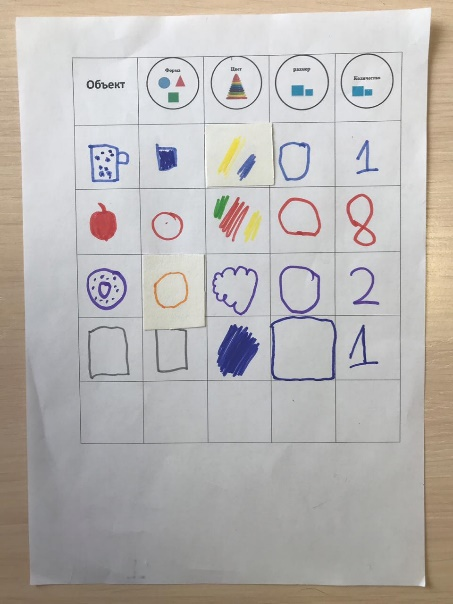 Объект Форма Цвет размер Количество
1
8
2
1